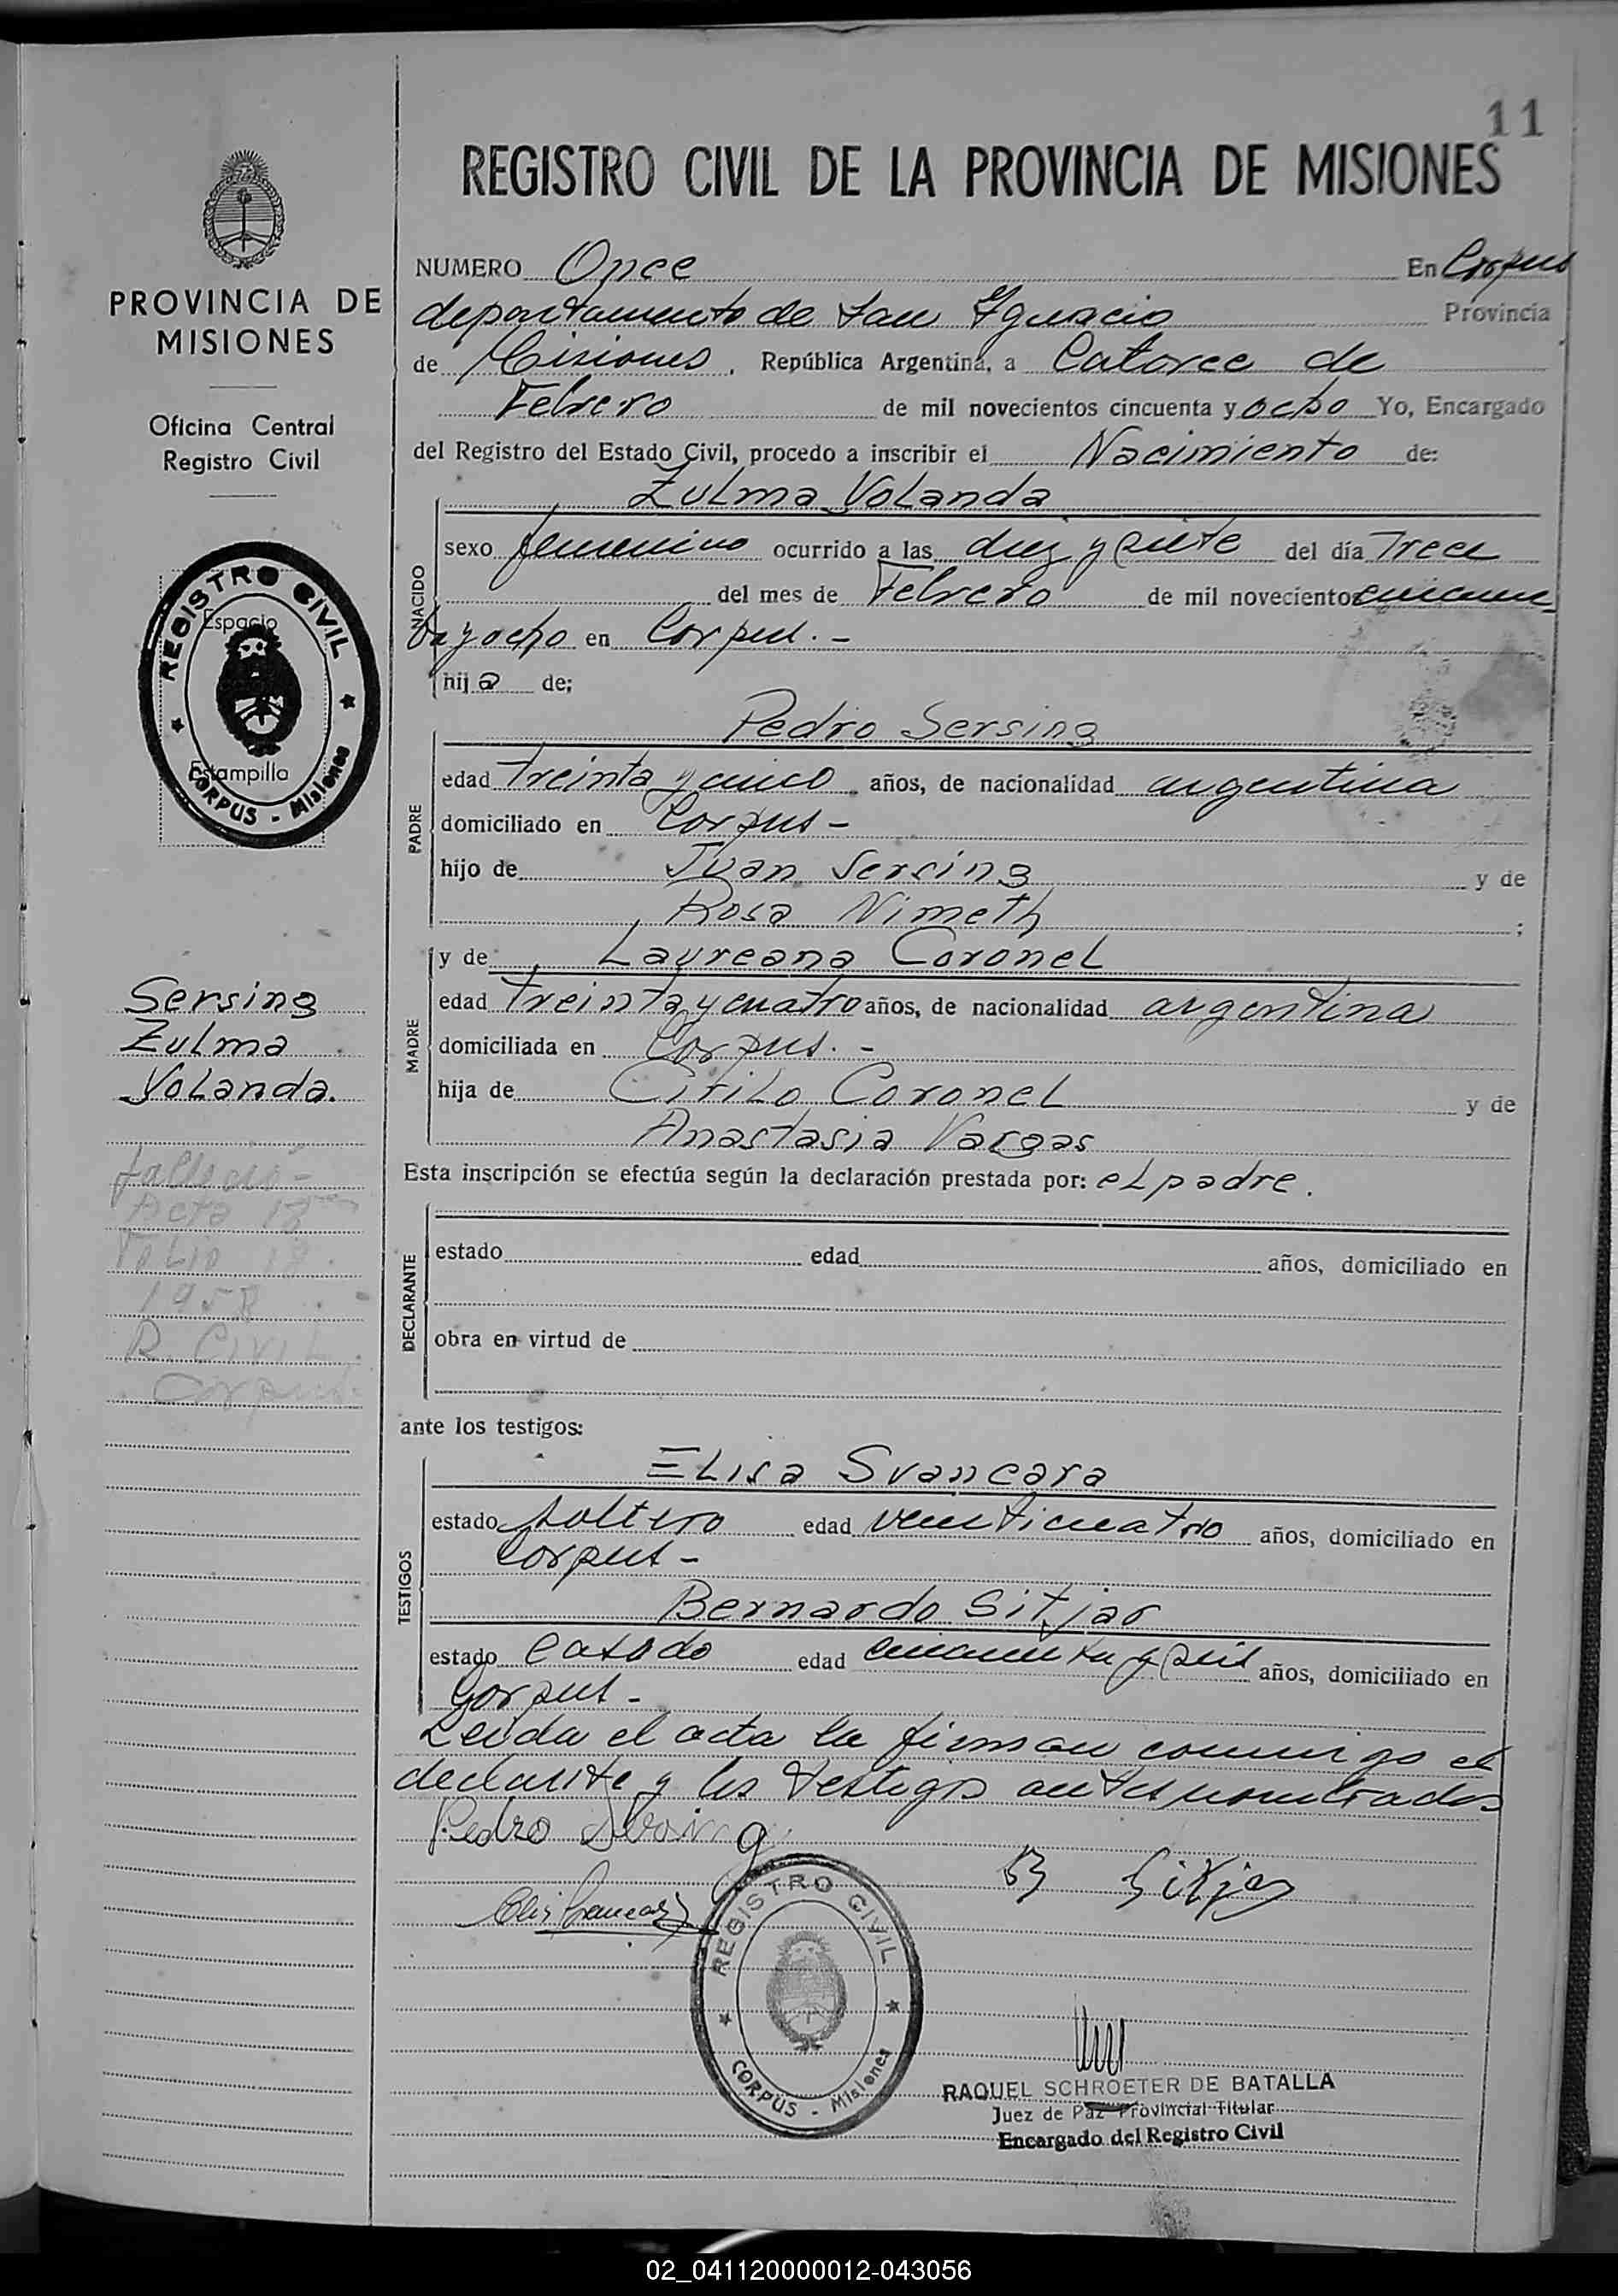 11
REGISTRO CIVIL DE LA PROVINCIA DE MISIONES
NUMERO Once En Corpus
departamento de San Ygnacio Provincia
de Misiones, República Argentina, a Catorce de
Febrero de mil novecientos cincuenta y ocho Yo, Encargado
del Registro del Estado Civil, procedo a inscribir el Nacimiento de:
NACIDO
Zulma Yolanda
sexo femenino ocurrido a las diez y siete del día Trece
del mes de Febrero de mil novecientos cincuen
ta y ocho en Corpus. -
hija de;
PADRE
Pedro Sersing
edad treinta y cinco años, de nacionalidad argentina
domiciliado en Corpus -
hijo de Juan Sersing y de
Rosa Nimeth ;
MADRE
y de Laureana Coronel
edad treinta y cuatro años, de nacionalidad argentina
domiciliada en Corpus. -
hija de Cirilo Coronel y de
Anastasia Vargas
Esta inscripción se efectúa según la declaración prestada por: el padre.
DECLARANTE
estado edad años, domiciliado en
obra en virtud de
ante los testigos:
TESTIGOS
Elisa Svancara
estado soltero edad veinticuatro años, domiciliado en
Corpus -
Bernardo Sitjar
estado Casado edad cincuenta y seis años, domiciliado en
Corpus -
Leida el acta la firman conmigo el
declarante y los testigos antes nombrados
Pedro Sersing
B Sitjar
REGISTRO CIVIL
CORPUS - Misiones
RAQUEL SCHROETER DE BATALLA
Juez de Paz Provincial Titular
Encargado del Registro Civil
PROVINCIA DE
MISIONES
Oficina Central
Registro Civil
REGISTRO CIVIL
Espacio
Estampilla
CORPUS - Misiones
Sersing
Zulma
Yolanda.
falleció -
Acta 18
Folio 18
1958
R. Civil
Corpus
02_041120000012-043056